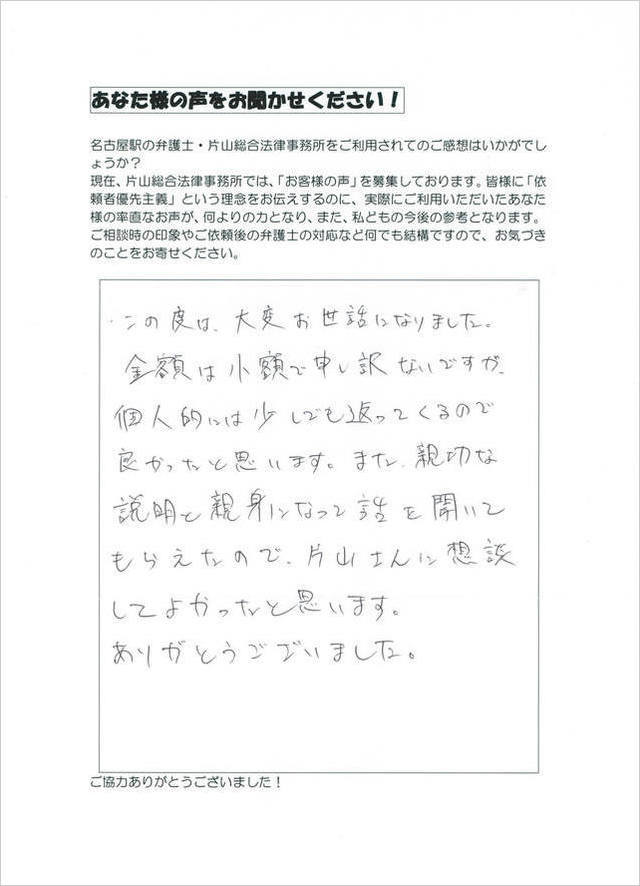 あなた様の声をお聞かせください！
名古屋駅の弁護士・片山総合法律事務所をご利用されてのご感想はいかがでし
ょうか？
現在、片山総合法律事務所では、「お客様の声」を募集しております。皆様に「依
頼者優先主義」という理念をお伝えするのに、実際にご利用いただいたあなた
様の率直なお声が、何よりの力となり、また、私どもの今後の参考となります。
ご相談時の印象やご依頼後の弁護士の対応など何でも結構ですので、お気づき
のことをお寄せください。
・この度は、大変お世話になりました。
金額は小額で申し訳ないですが、
個人的には少しでも返ってくるので
良かったと思います。また、親切な
説明と親身になって話を聞いて
もらえたので、片山さんに想談
してよかったと思います。
ありがとうございました。
ご協力ありがとうございました！